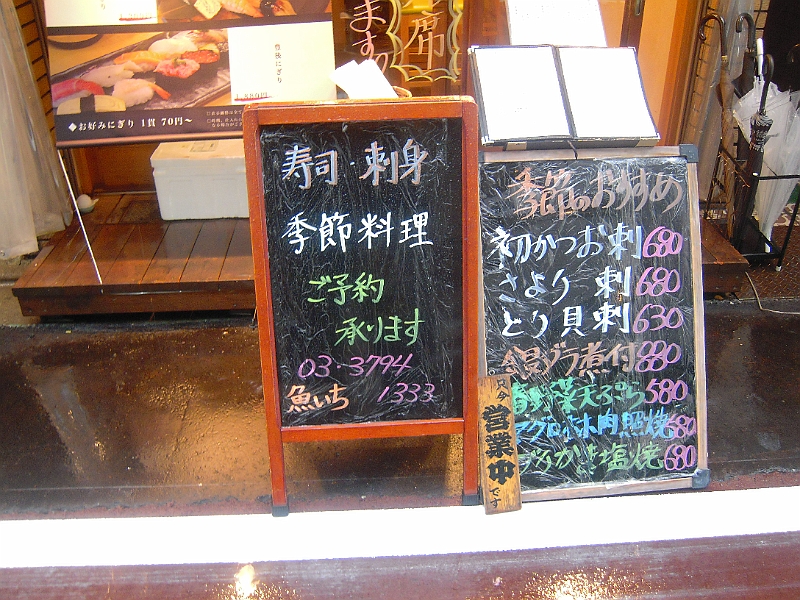 豊後にぎり
◆お好みにぎり 1貫 70円〜
寿司・刺身
季節料理
ご予約
承ります
03-3794
魚いち 1333
季節のおすすめ
初かつお刺 680
さより 刺 680
とり貝刺 630
金目アラ煮付 880
春野菜天ぷら 580
マグロほほ肉照焼 680
塩焼 680
只今
営業中
です